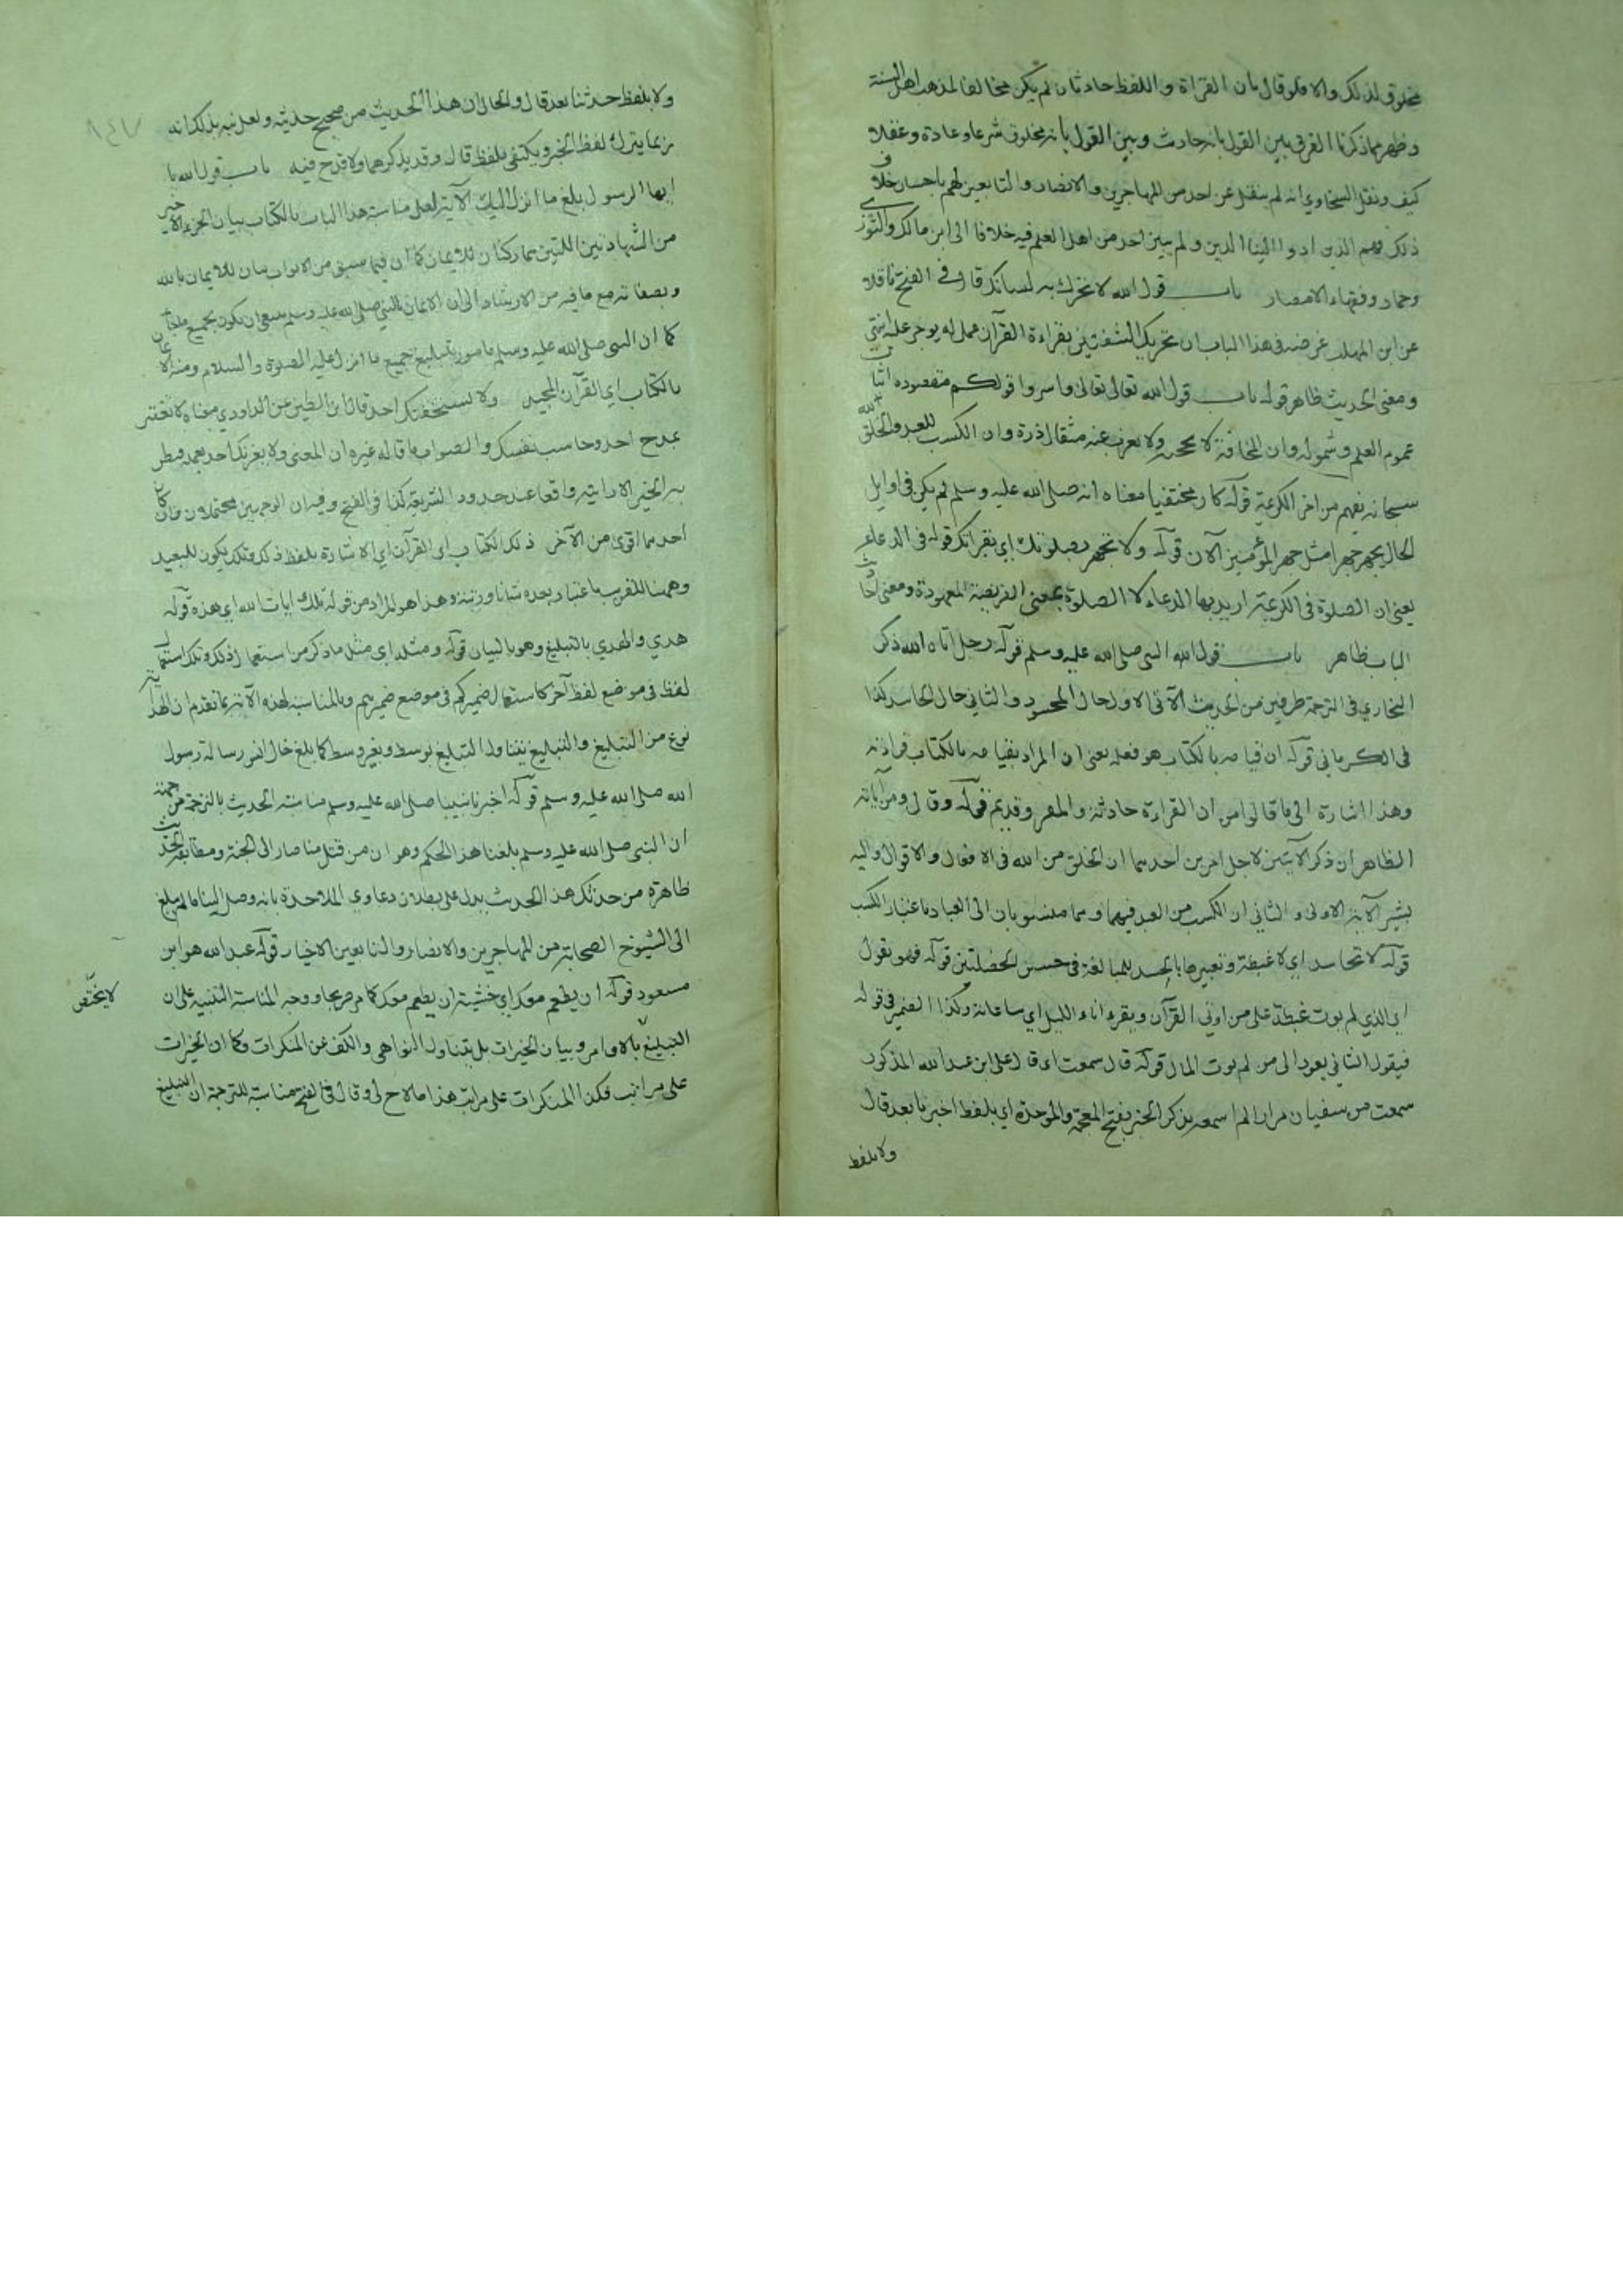 مخلوق لذلك والا فلو قال بان القراة واللفظ حادثان لم يكن مخالفا لمذهب اهل السنة
وظهر مما ذكرنا الفرق بين القول بانه حادث وبين القول بانه مخلوق شرعا وعادة وعقلا
كيف ونقل السخاوي انه لم ينقل عن احد من المهاجرين والانصار والتابعين لهم باحسان خلاف
ذلك وهم الذين ادوا الينا الدين ولم يبين احد من اهل العلم فيه خلافا الى ابن مالك والثوري
وحماد وفقهاء الامصار باب قول الله لا تحرك به لسانك قال في الفتح ناقلا
عن ابن المهلب غرضه في هذا الباب ان تحريك الشفتين بقراءة القرآن عمل له يوجر عليه انتهى
ومعنى الحديث ظاهر قوله باب قول الله تعالى واسروا قولكم مقصوده اثبات
عموم العلم وشموله وان المخافتة لا ولا يعزب عنه مثقال ذرة وان الكسب للعبد والخلق لله
سبحانه يفهم من اخر الكريمة قوله كان مختفيا معناه انه صلى الله عليه وسلم لم يكن في اوايل
الحال يجهر جهرا مثل جهر المؤمنين الآن قوله ولا تجهر بصلوتك اي بقراتك قوله في الدعاء
يعني ان الصلوة في الكريمة اريد بها الدعاء لا الصلوة بمعنى الفريضة المعهودة ومعنى احاديث
الباب ظاهر باب قول النبي صلى الله عليه وسلم قوله رجل اتاه الله ذكر
البخاري في الترجمة طرفين من الحديث الآتي الاول حال المحسود والثاني حال الحاسد كذا
في الكرماني قوله ان قيامه بالكتاب هو فعله يعني ان المراد بقيامه بالكتاب قراذته
وهذا اشارة الى ما قالوا من ان القراءة حادثة والمقر وقديم قوله وقال ومن آياته
الظاهر ان ذكر الآيتين لاجل امرين احدهما ان الخلق من الله في الافعال والاقوال واليه
يشير الآية الاولى والثاني ان الكسب من العبد فيهما وهما منسوبان الى العباد باعتبار الكسب
قوله لا تحاسد اي لا غبطة وتعبيرها بالحسد للمبالغة في حسن الخصلتين قوله فهو يقول
اي الذي لم يوت غبطة على من اوتي القرآن ويقرء اناء الليل اي ساعاته وكذا الضمير في قوله
فيقول الثاني يعود الى من لم يوت المال قوله قال سمعت اي قال علي ابن عبد الله المذكور
سمعت من سفيان مرارا لم اسمعه يذكر الخبر بفتح المعجمة والموحدة اي بلفظ اخبرنا بعد قال
ولا بلفظ
ولا بلفظ حدثنا بعد قال والحال ان هذا الحديث من صحيح حديثه ولعل نبه بذلك انه
ربما يترك لفظ الخبر ويكتفي بلفظ قال وقد يذكرهما ولا قدح فيه باب قول الله يا
ايها الرسول بلغ ما انزل اليك الآية لعل مناسبة هذا الباب بالكتاب بيان الجزء الاخير
من الشهادتين اللتين هما ركنان للايمان كما ان فيما سبق من الابواب بيان للايمان بالله
وبصفاته مع ما فيه من الارشاد الى ان الايمان بالنبي صلى الله عليه وسلم ينبغي ان يكون بجميع ما جاء
كما ان النبي صلى الله عليه وسلم مامور بتبليغ جميع ما انزل عليه الصلوة والسلام ومنه الايمان
بالكتاب اي القرآن المجيد ولا يستخفنك احد قال ابن التين عن الداودي معناه لا تغتر
بمدح احد وحاسب نفسك والصواب ما قاله غيره ان المعنى ولا يغرنك احد بعمله فتظن
به الخير الا رايته واقفا عند حدود الشريعة كذا في الفتح وفيه ان الوجهين محتملان وان كان
احدهما اقوى من الآخر ذلك الكتاب اي القرآن اي الاشارة بلفظ ذلك وتلك يكون للبعيد
وههنا للقريب باعتبار بعده شانا ورتبة وهذا هو المراد من قوله تلك ايات الله اي هذه قوله
هدي والهدي بالتبليغ وهو بالبيان قوله ومثله اي مثل ما ذكر من استعمال ذلك وتلك استعمال
لفظ في موضع لفظ آخر كاستعمال ضمير كم في موضع ضمير بهم وبالمناسبة لهذه الآية بما تقدم ان الهداية
نوع من التبليغ والتبليغ يتناول التبليغ بوسط وبغير وسط كما بلغ خال انس رسالة رسول
الله صلى الله عليه وسلم قوله اخبرنا نبينا صلى الله عليه وسلم مناسبة الحديث بالترجمة من جهة
ان النبي صلى الله عليه وسلم بلغنا هذا الحكم وهو ان من قتل منا صار الى الجنة ومطابقة الحديث
ظاهرة من حدثك هذا الحديث يدل على بطلان دعاوي الملاحدة بانه وصل الينا ما لم يبلغ
الى الشيوخ الصحابة من المهاجرين والانصار والتابعين الاخيار قوله عبد الله هو ابن
مسعود قوله ان يطعم معك اي خشية ان يطعم معك كما مر صريحا ووجه المناسبة التنبيه على ان
التبليغ بالاوامر وبيان الخيرات بل يتناول النواهي والكف عن المنكرات وكما ان الخيرات
على مراتب فكذا المنكرات على مراتب هذا ما لاح لي وقال في الفتح مناسبته للترجمة ان التبليغ
لا يختص